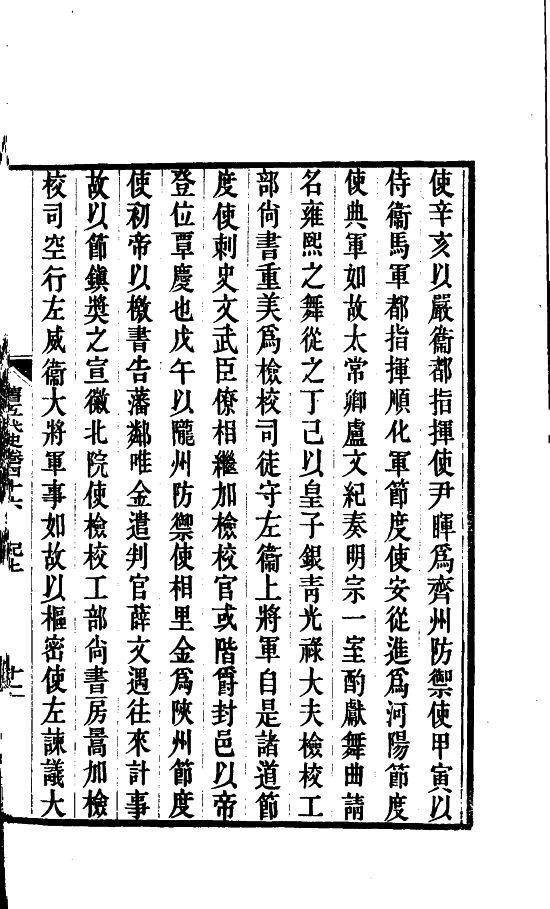 使辛亥以嚴衞都指揮使尹暉爲齊州防禦使甲寅以
侍衞馬軍都指揮順化軍節度使安從進爲河陽節度
使典軍如故太常卿盧文紀奏明宗一室酌獻舞曲請
名雍熙之舞從之丁已以皇子銀青光祿大夫檢校工
部尙書重美爲檢校司徒守左衞上將軍自是諸道節
度使刺史文武臣僚相繼加檢校官或階爵封邑以帝
登位覃慶也戊午以隴州防禦使相里金爲陜州節度
使初帝以檄書告藩鄰唯金遣判官薛文遇往來計事
故以節鎭奬之宣徽北院使檢校工部尙書房暠加檢
校司空行左威衞大將軍事如故以樞密使左諫議大
舊五代史卷四十六 紀七